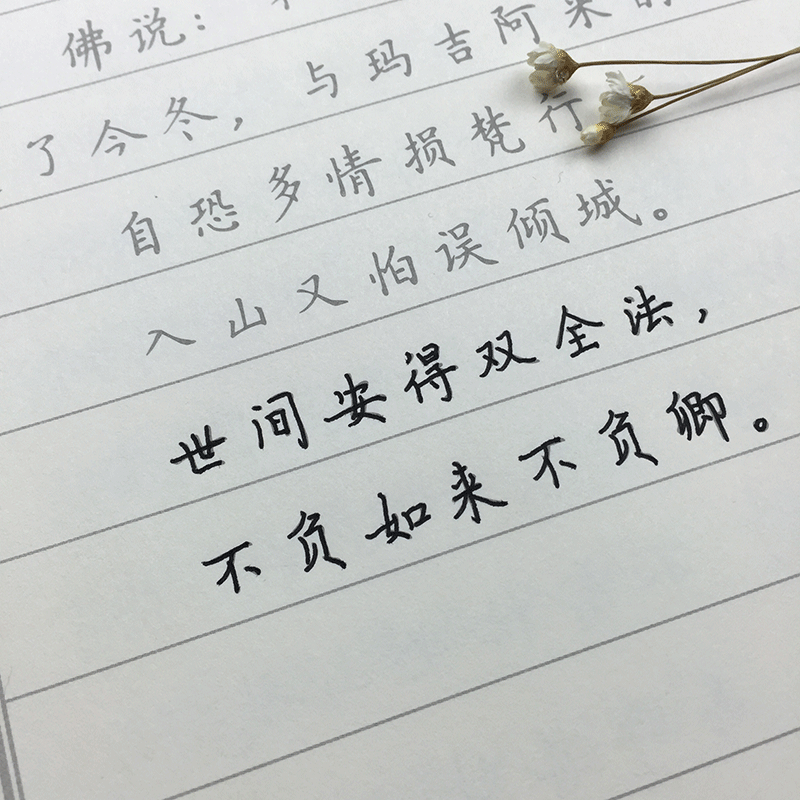 佛说：
了今冬，与玛吉阿米的
自恐多情损梵行
入山又怕误倾城。
世间安得双全法，
不负如来不负卿。